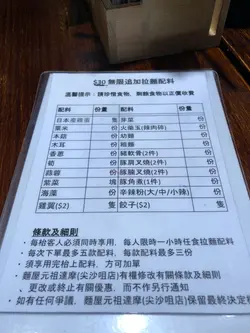 $30 無限追加拉麵配料
溫馨提示：請珍惜食物，剩餘食物以正價收費
配料 份量 配料 份量
日本產雞蛋 隻 芽菜 份
粟米 份 火樂玉(辣肉碎) 份
本菇 份 幼麵 份
木耳 份 粗麵 份
香蔥 份 豬軟骨(2件) 份
筍 份 豚肩叉燒(2件) 份
蒜蓉 份 豚腩叉燒(2件) 份
紫菜 塊 豚角煮(1件) 份
海藻 份 辛辣粉(大/中/小辣) 份
雞翼($2) 隻 餃子($2) 隻
條款及細則
- 每枱客人必須同時享用，每人限時一小時任食拉麵配料
- 每次下單最多五款配料，每款配料最多三份
- 須享用完枱上配料，方可加單
- 麵屋元祖達摩(尖沙咀店)有權修改有關條款及細則
、更改或終止有關優惠，而不作另行通知
- 如有任何爭議，麵屋元祖達摩(尖沙咀店)保留最終決定